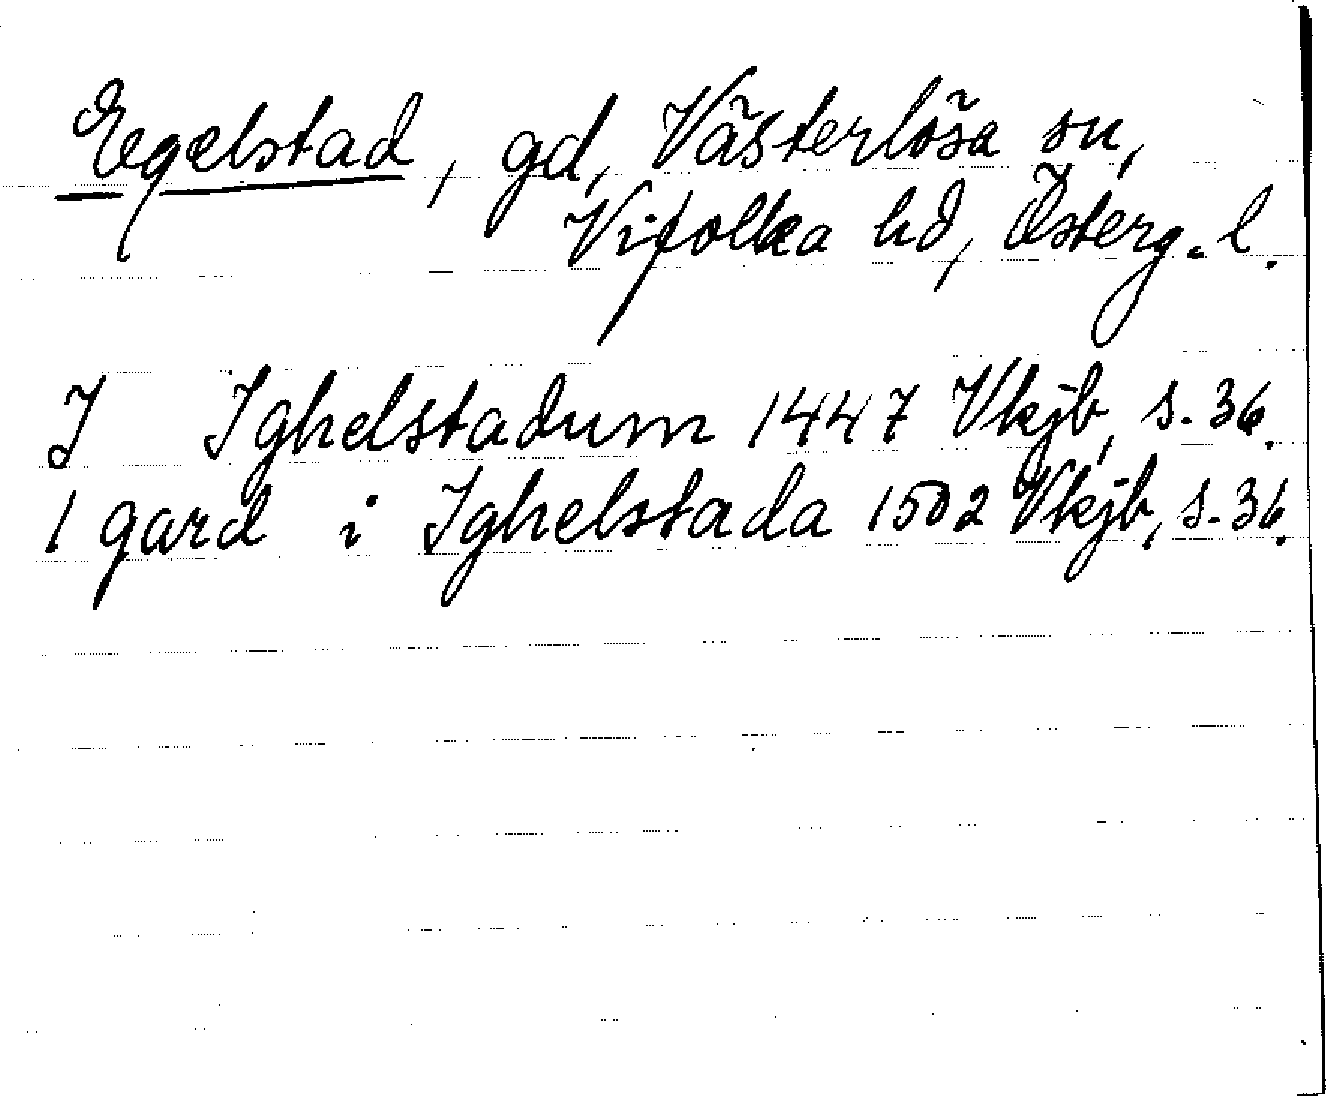 Egelstad, gd, Västerlösa sn,
Vifolka hd, Österg. l.
I Ighelstadum 1447 Vkjb, s. 36.
1 gard i Ighelstada 1502 Vkjb, s. 36.